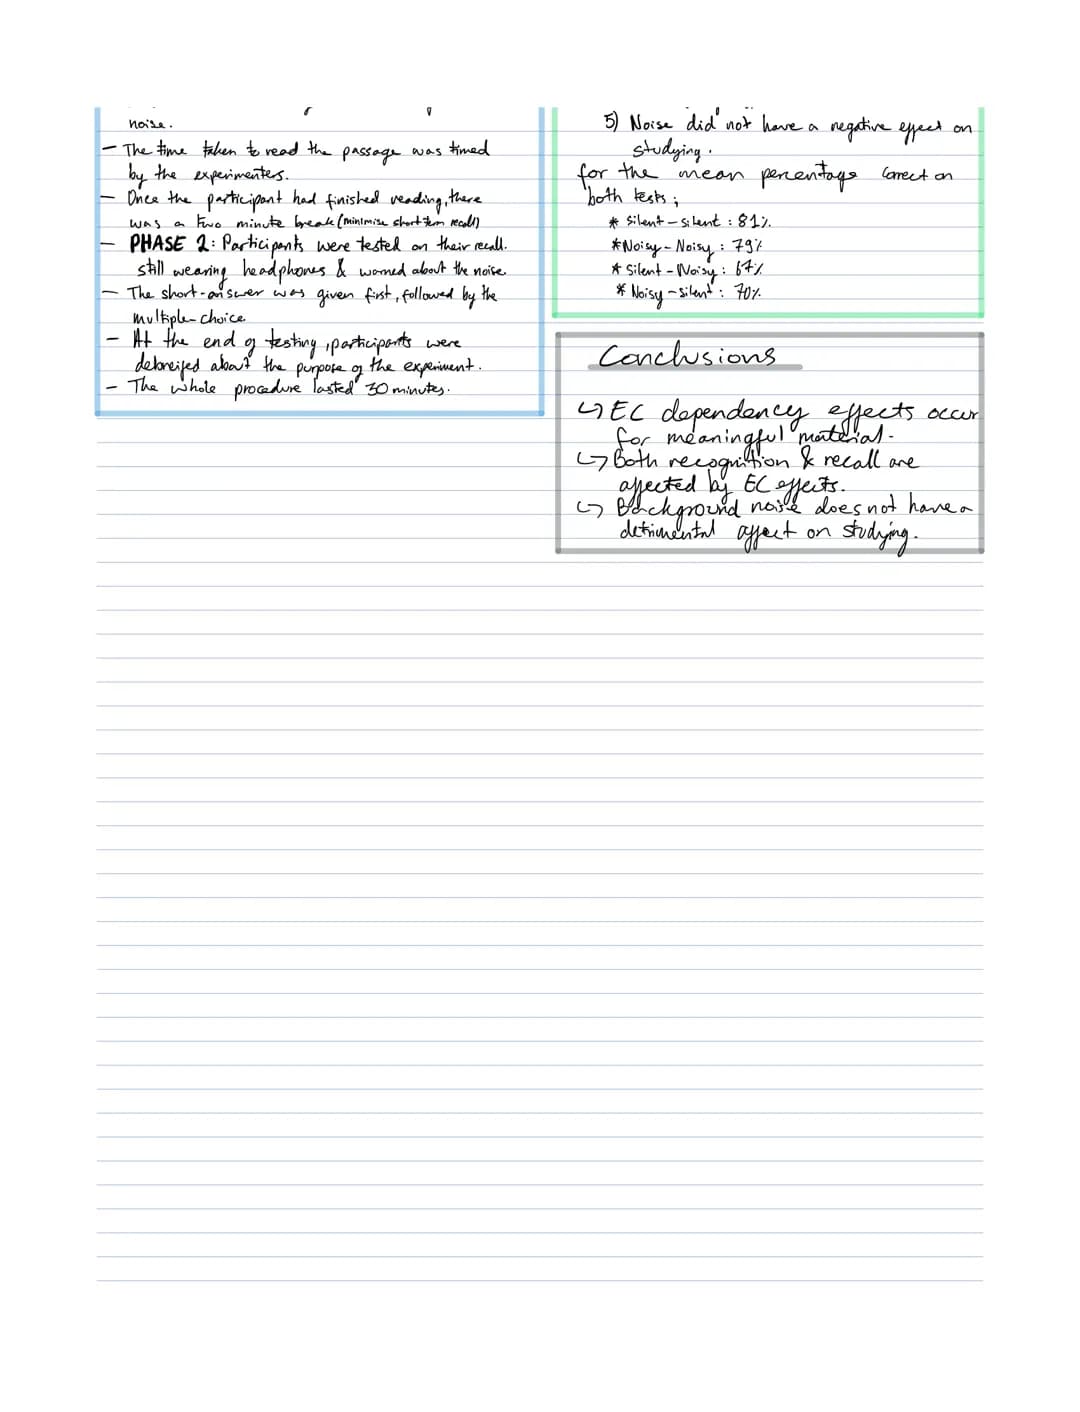 noise.
- The time taken to read the passage was timed
by the experimenters.
- Once the participant had finished reading, there
was a two minute break (minimise short term recall)
- PHASE 2: Participants were tested on their recall.
still wearing headphones & warned about the noise.
- The short-answer was given first, followed by the
multiple-choice.
- At the end of testing, participants were
debreifed about the purpose of the experiment.
- The whole procedure lasted 30 minutes.
5) Noise did not have a negative effect on
studying.
for the mean percentage correct on
both tests;
* Silent-silent: 81%.
* Noisy-Noisy: 79%
* Silent-Noisy: 67%
* Noisy-silent: 70%.
Conclusions
↳ EC dependency effects occur
for meaningful material.
↳ Both recognition & recall are
affected by EC effects.
↳ Background noise does not have a
detrimental affect on studying.